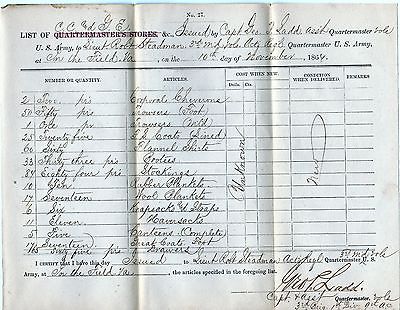 No. 27.
C. C. and G. E.
LIST OF QUARTERMASTER'S STORES, &c. Issued by Capt Geo. T. Ladd, asst Quartermaster Vols
U. S. Army, to Lieut Robt Steadman, 3d Md Vols, Actg Regl Quartermaster U. S.
Army, at In the Field, Va on the 10th day of November, 1864.
NUMBER OR QUANTITY. ARTICLES. COST WHEN NEW. CONDITION WHEN DELIVERED. REMARKS.
Dolls. Cts.
2 Two prs Corporals Chevrons
50 Fifty prs Trowsers (Foot)
1 One pr Trowsers (Mt'd)
25 Twenty five S. S. Coats (Lined)
60 Sixty Flannel Shirts
33 Thirty three prs Booties
84 Eighty four prs Stockings
10 Ten Rubber Blankets
17 Seventeen Wool Blankets
6 Six Knapsacks & Straps
11 Eleven Haversacks
5 Five Canteens (Complete)
17 Seventeen Great Coats, Foot
65 Sixty five prs Drawers
Unknown
New
I certify that I have this day Issued to Lieut Robt Steadman Actg Regl Quartermaster U. S.
3d Md Vols
Army, at In the Field, Va the articles specified in the foregoing list.
Geo. T. Ladd
Capt & asst Quartermaster, Vols